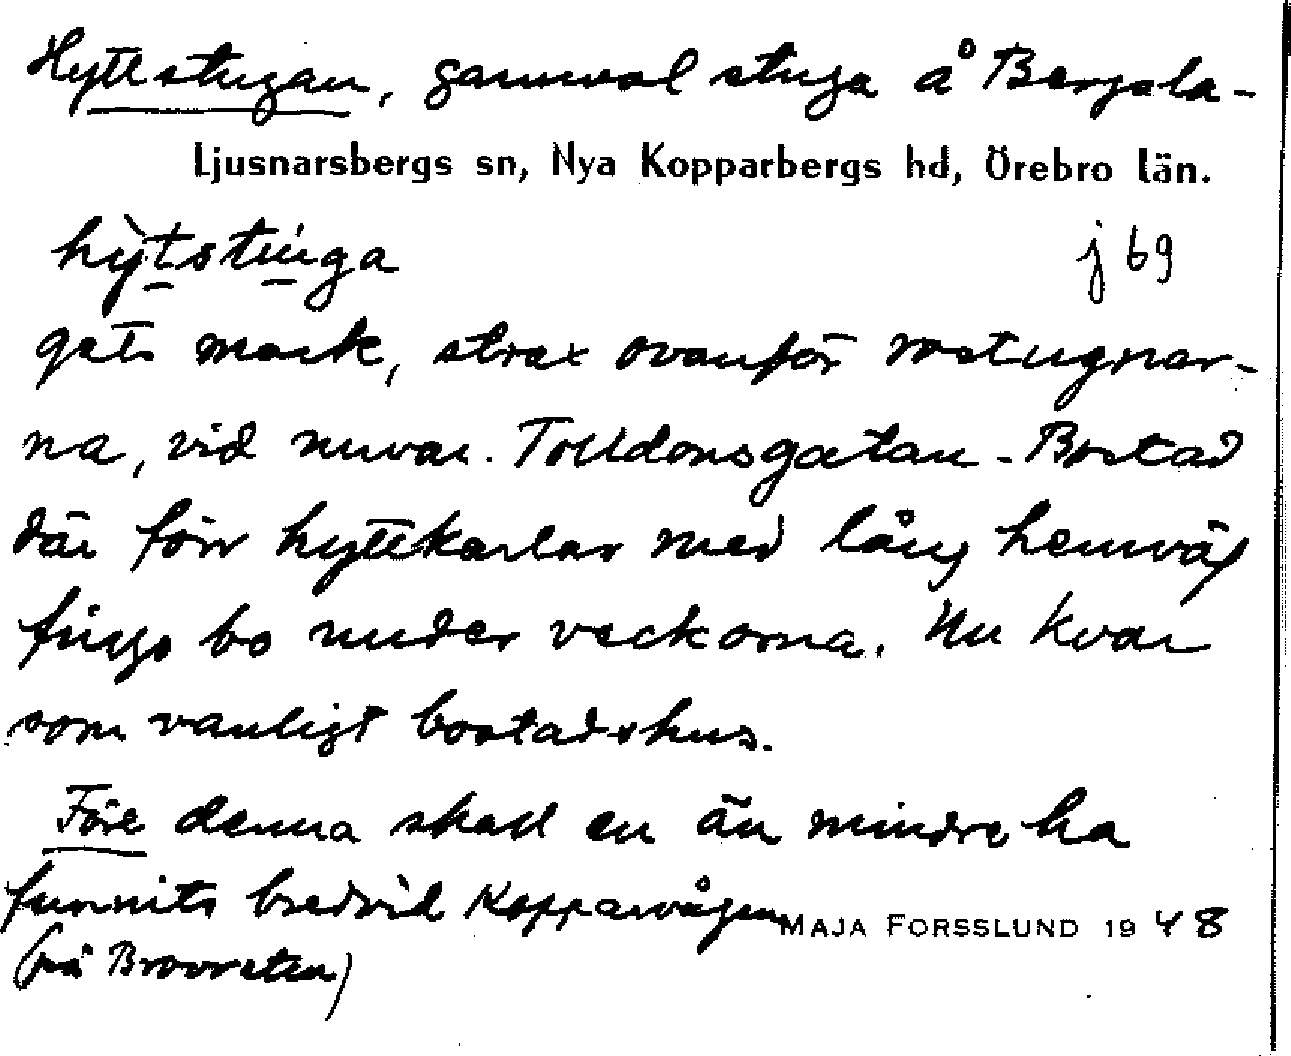 Hyttstugan, gammal stuga å Bergsla-
Ljusnarsbergs sn, Nya Kopparbergs hd, Örebro län.
hỳtstúga j 69
gets mark, strax ovanför rostugnar-
na, vid nuvar. Tolldonsgatan - Bostad
där förr hyttkarlar med lång hemväg
fingo bo under veckorna. Nu kvar
som vanligt bostadshus.
Före denna skall en än mindre ha
funnits bredvid Kopparvågen
MAJA FORSSLUND 19 48
(på Brovreten)